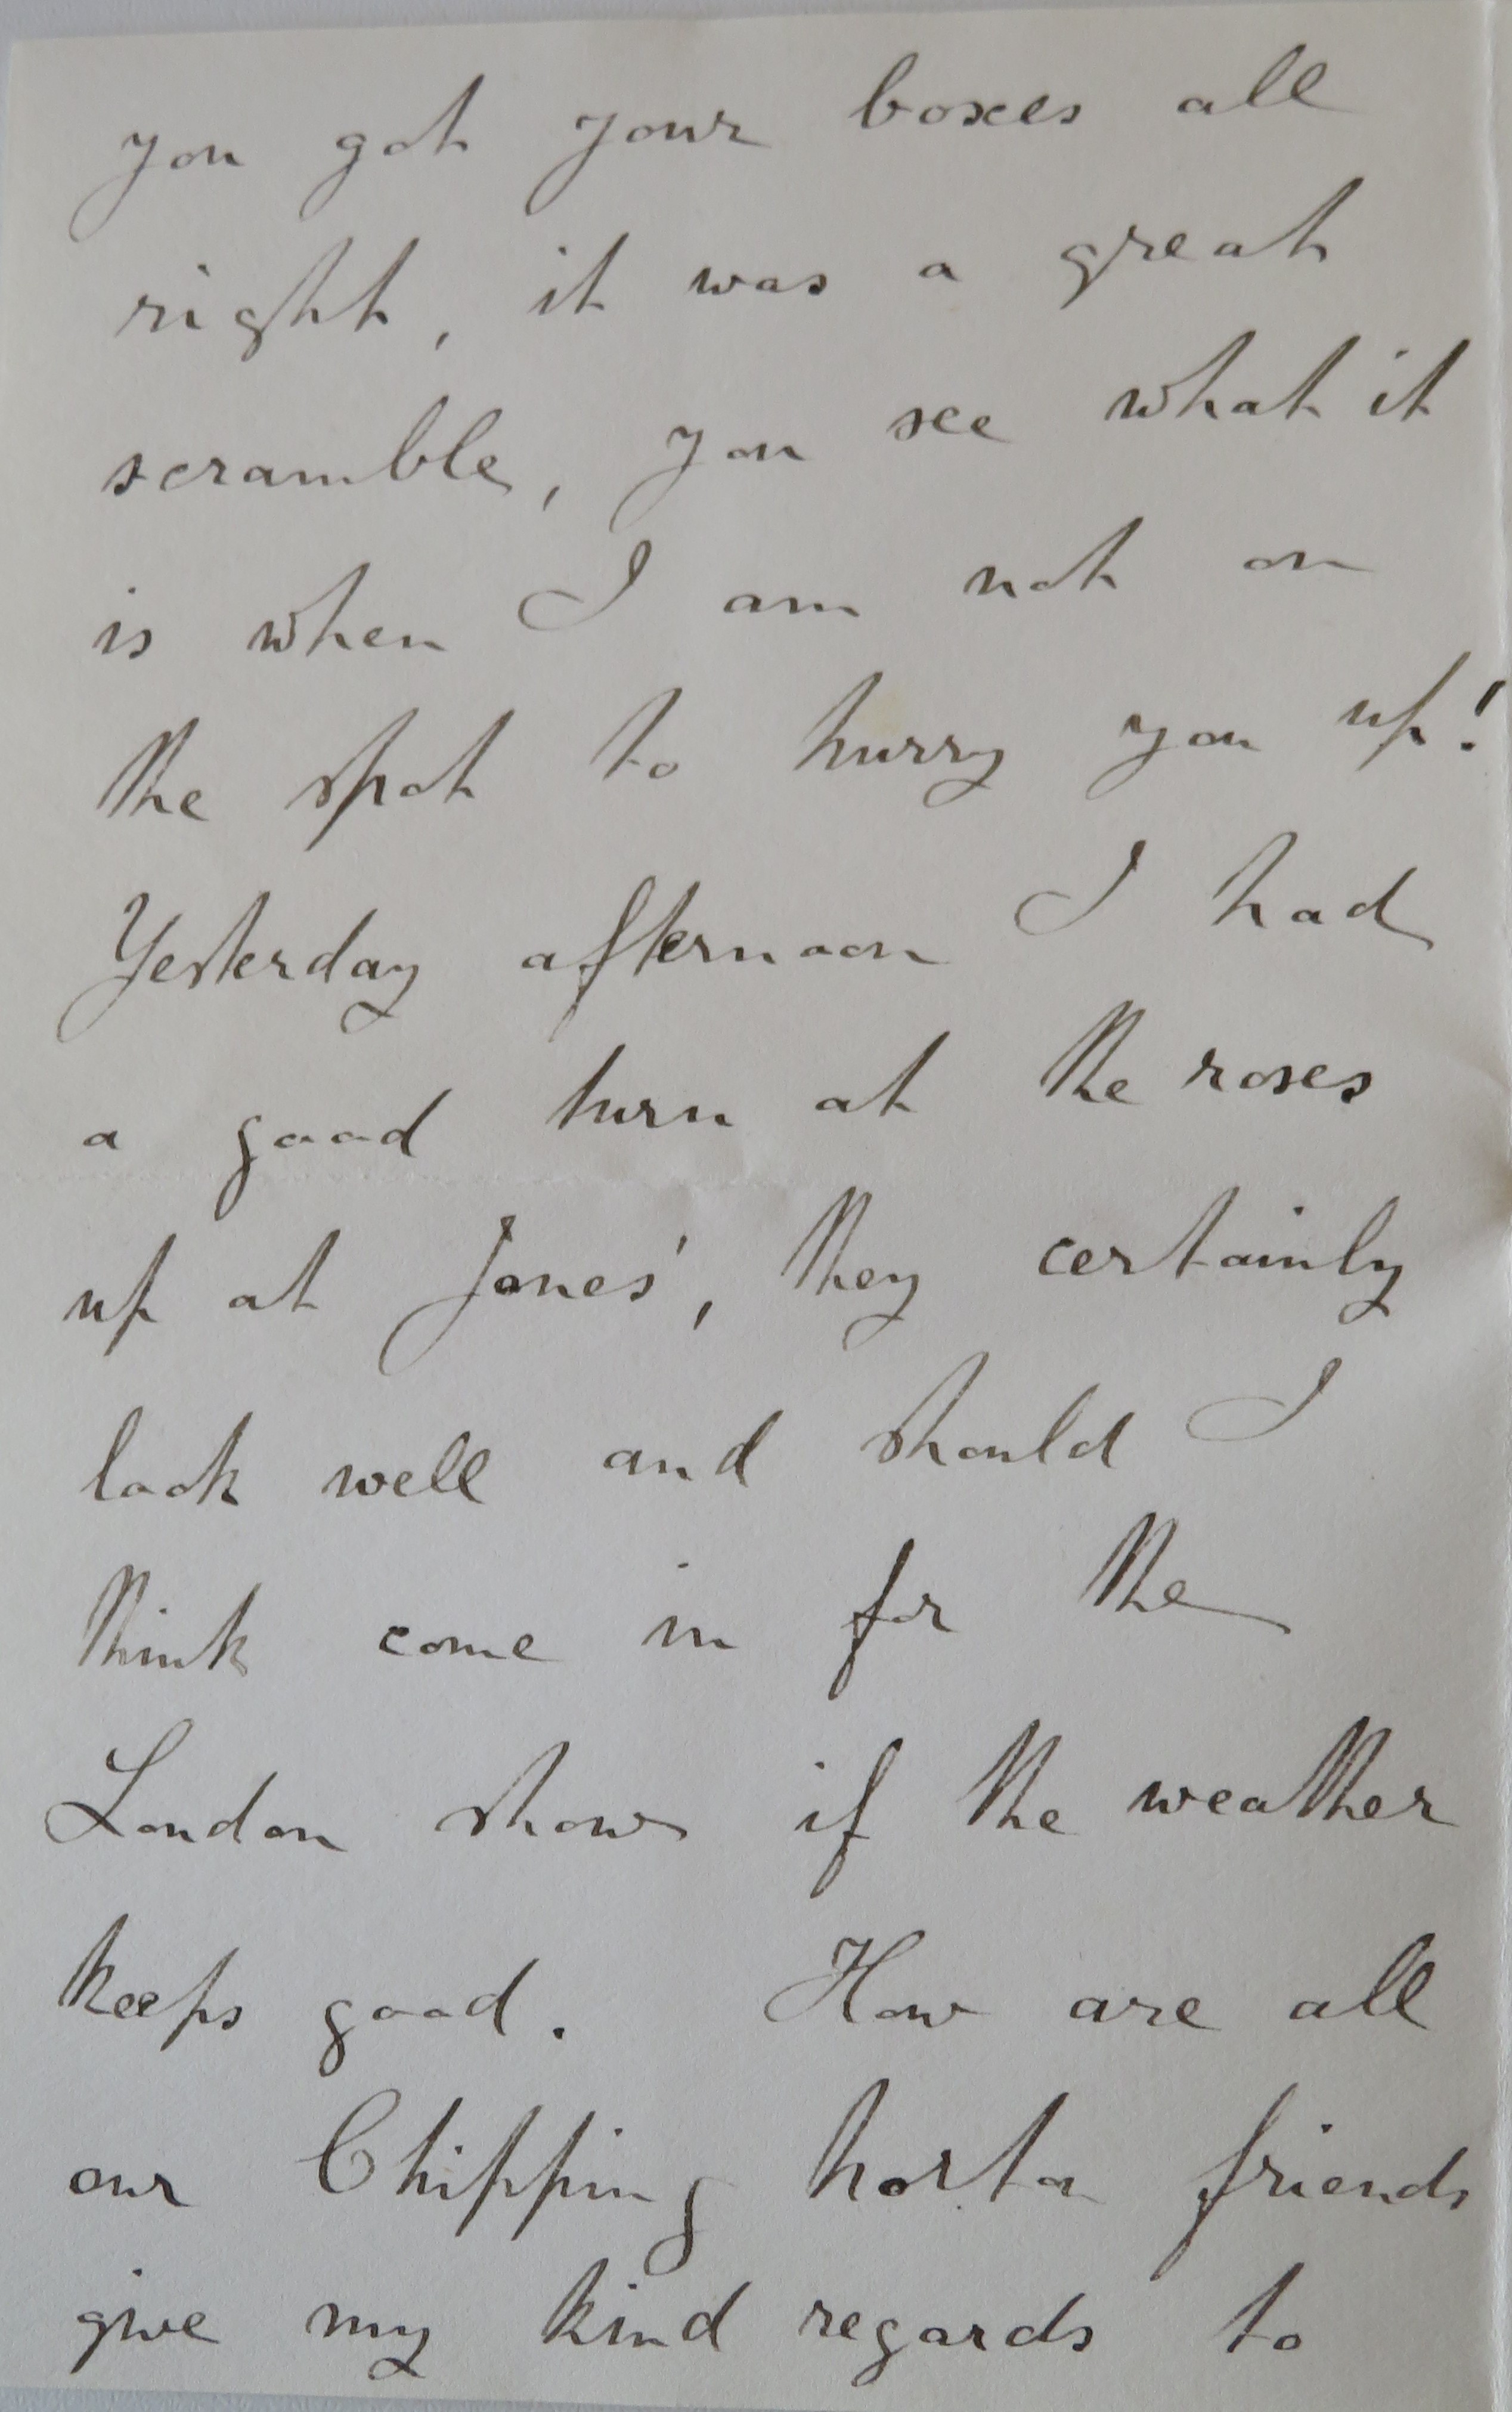 you got your boxes all
right, it was a great
scramble, you see what it
is when I am not on
the spot to hurry you up!
Yesterday afternoon I had
a good turn at the roses
up at Jones', they certainly
look well and should I
think come in for the
London show if the weather
keeps good. How are all
our Chipping horton friends
give my kind regards to